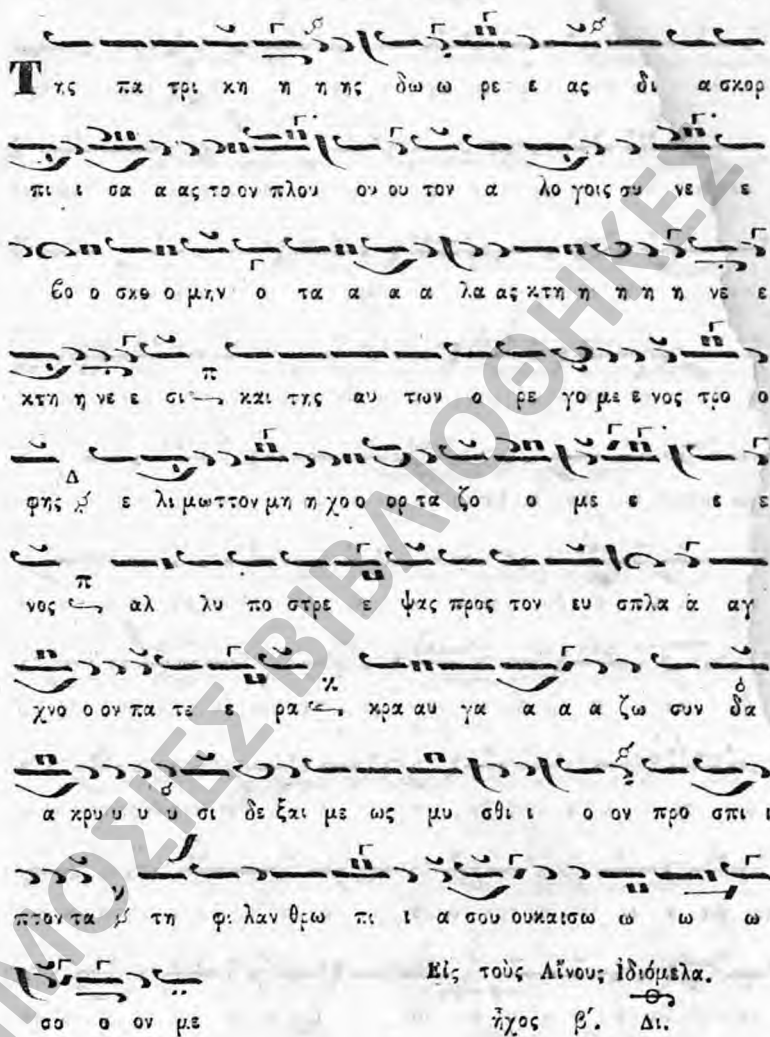 Της πα τρι κη η η ης δω ω ρε ε ας δι α σκορ
πι ι σα α ας το ον πλου ου ου τον α λο γοις συ νε ε
βο ο σκο ο μην ο τα α α α λα ας κτη η η η η νε ε
κτη η νε ε σι π και της αυ των ο ρε γο με ε νος τρο ο
φης Δ ε λι μωττον μη η χο ο ορ τα ζο ο με ε ε ε
νος π αλ λυ πο στρε ε ψας προς τον ευ σπλα α αγ
χνο ο ον πα τε ε ρα κρα αυ γα α α α ζω συν δα
α κρυ υ υ υ σι δε ξαι με ως μυ σθι ι ο ον προ σπι ι
πτον τα τη φι λαν θρω πι ι α σου ου και σω ω ω ω
σο ο ον με
Εἰς τοὺς Αἴνους ἰδιόμελα.
ἦχος β΄. Δι.
ΔΗΜΟΣΙΕΣ ΒΙΒΛΙΟΘΗΚΕΣ